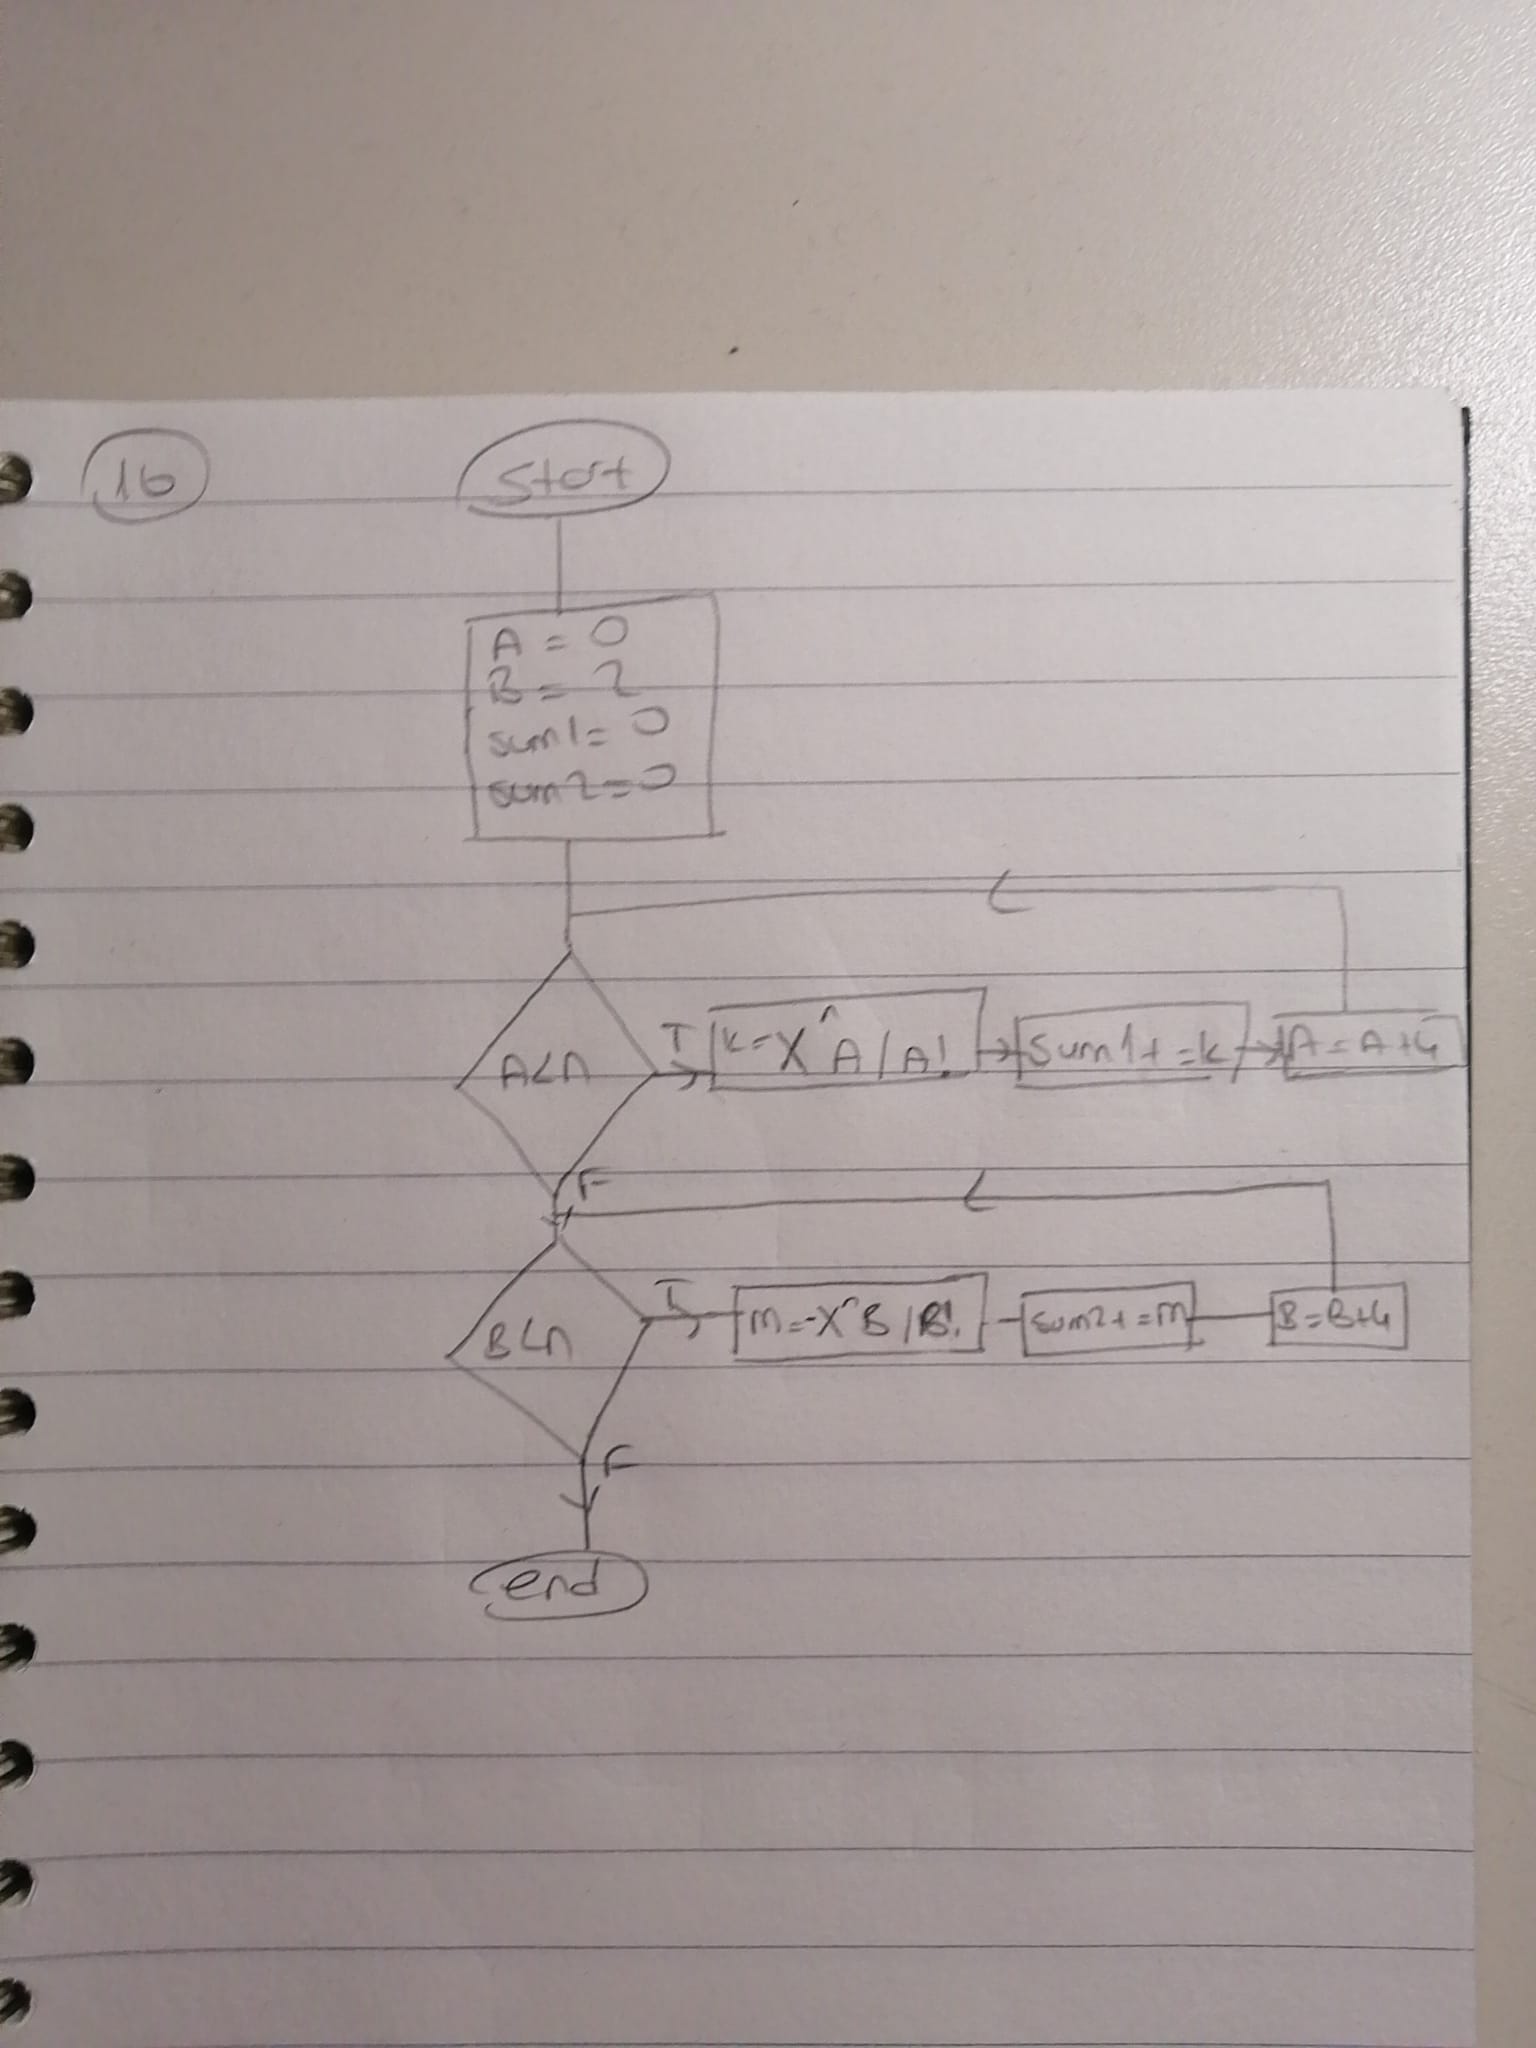 16
Start
A = 0
B = 2
sum1 = 0
sum2 = 0
A<n
T
k = X^A / A!
sum1 + = k
A = A+4
F
B<n
T
m = -X^B / B!
sum2 + = m
B = B+4
F
end